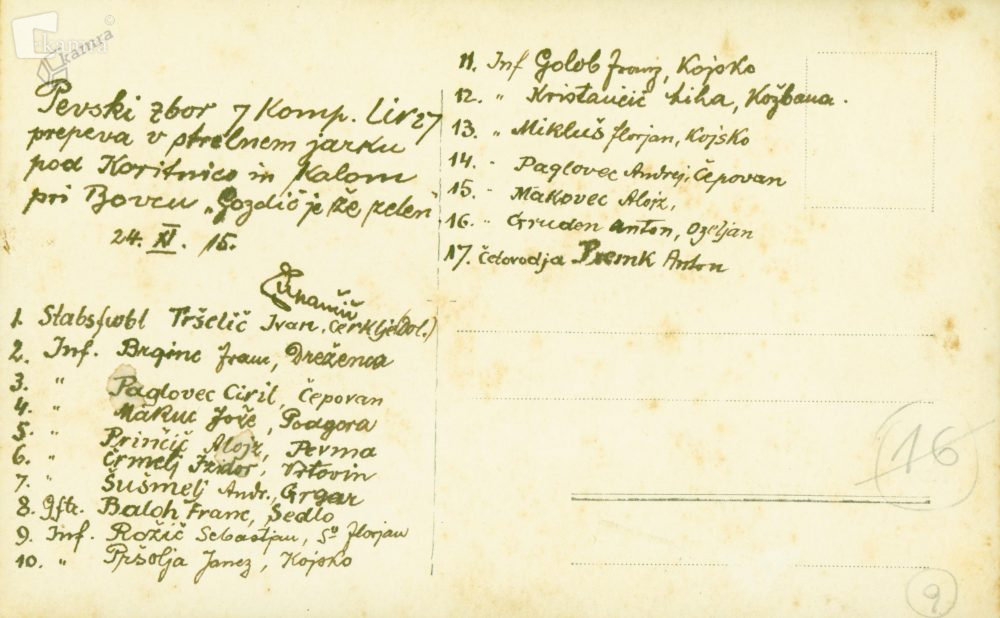 kamra
kamra
Pevski zbor 7 Komp. Lir 27
prepeva v strelnem jarku
pod Koritnico in Kalom
pri Bovcu „Gozdič je že zelen“
24. XI. 15.
1. Stabsfwbl Tršelič Ivan, Cerklje (Dol.)
2. Inf. Brginc Franc, Dreženca
3. " Paglovec Ciril, Čepovan
4. " Makuc Jože, Podgora
5. " Prinčič Alojz, Pevma
6. " Črmelj Izidor, Vrtovin
7. " Šušmelj Andr., Grgar
8. Gftr. Baloh Franc, Sedlo
9. Inf. Rožič Sebastjan, Sv Florjan
10. " Pršolja Janez, Kojsko
11. Inf Golob Franz, Kojsko
12. " Kristančič Miha, Kožbana.
13. " Mikluš Florjan, Kojsko
14. " Paglovec Andrej, Čepovan
15. " Makovec Alojz,
16. " Gruden Anton, Ozeljan
17. Četovodja Premk Anton
16
9